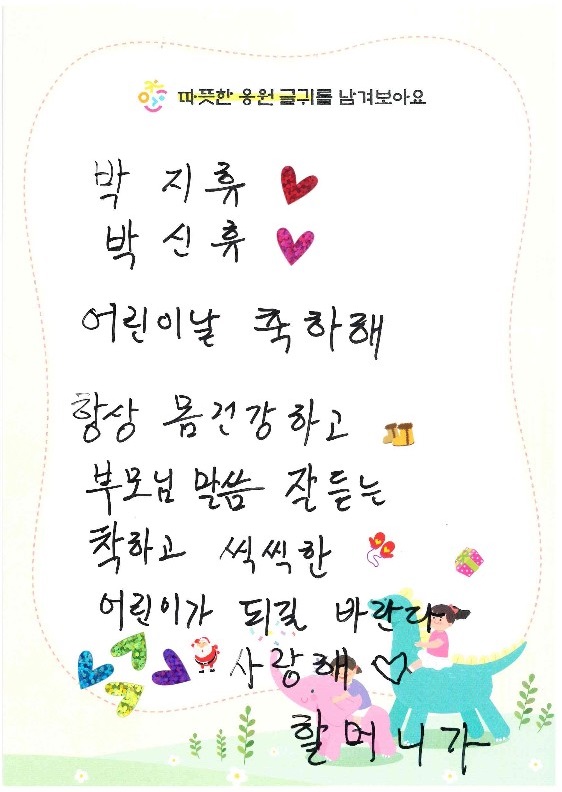 따뜻한 응원 글귀를 남겨보아요
박 지휴
박 신휴
어린이날 축하해
항상 몸건강하고
부모님 말씀 잘듣는
착하고 씩씩한
어린이가 되길 바란다
사랑해 ♡
할머니가